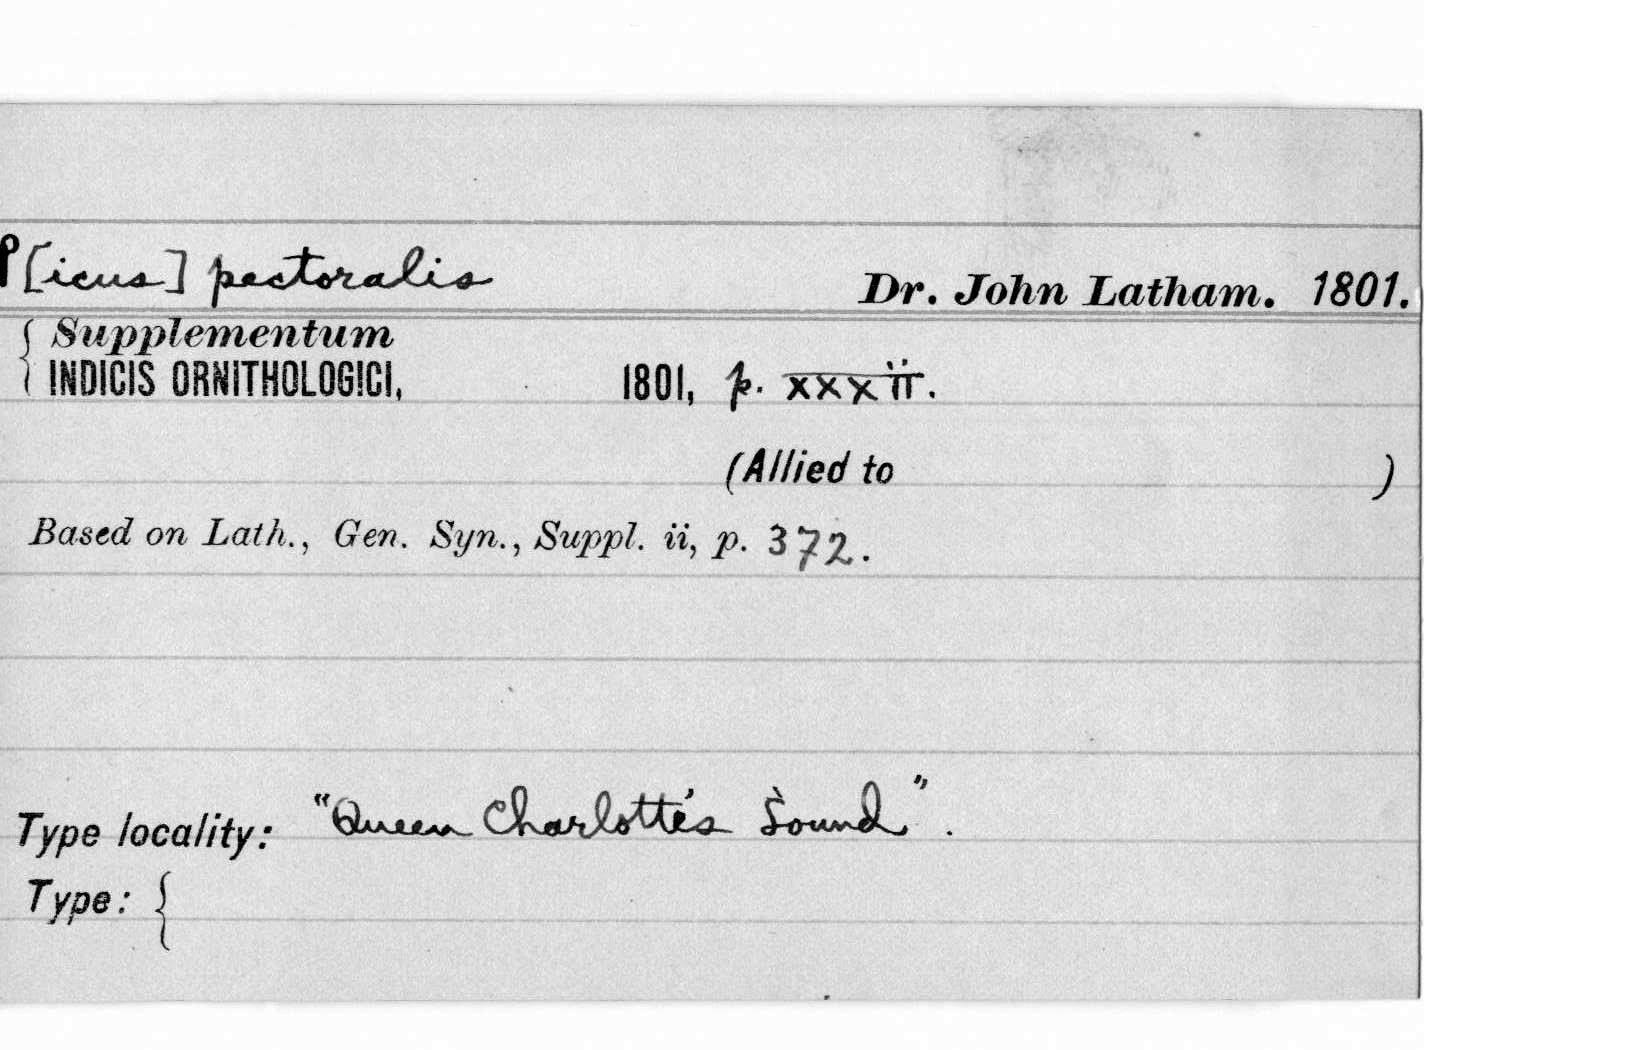 P[icus] pectoralis Dr. John Latham. 1801.
{ Supplementum
INDICIS ORNITHOLOGICI, 1801, p. xxxii.
(Allied to )
Based on Lath., Gen. Syn., Suppl. ii, p. 372.
Type locality: "Queen Charlotte's Sound".
Type: {